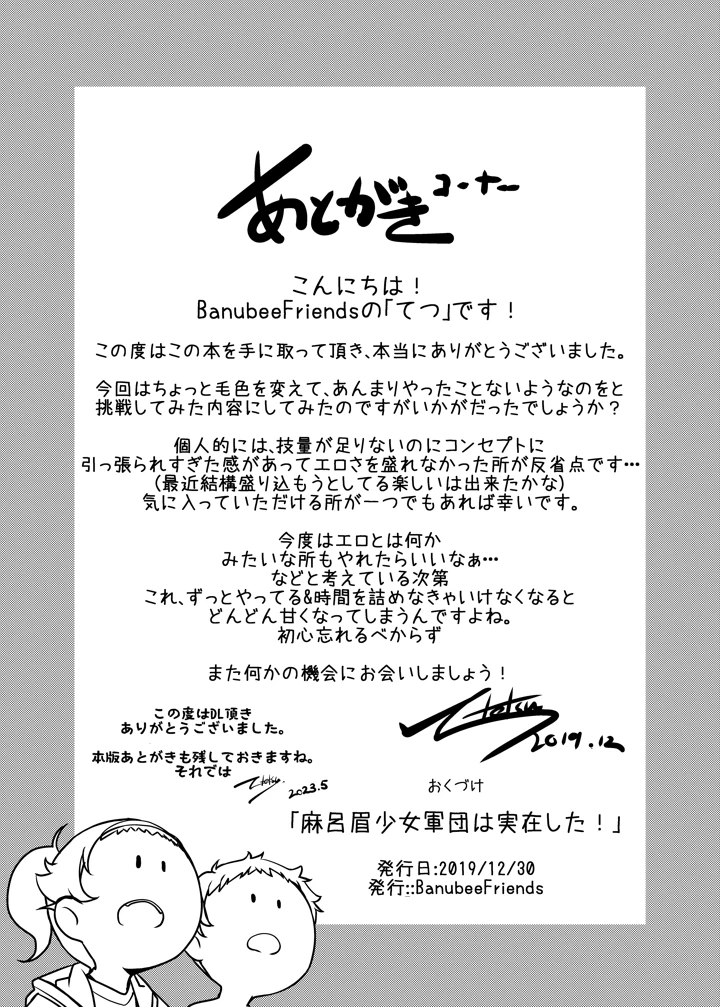 あとがきコーナー
こんにちは！
BanubeeFriendsの「てつ」です！
この度はこの本を手に取って頂き、本当にありがとうございました。
今回はちょっと毛色を変えて、あんまりやったことないようなのをと
挑戦してみた内容にしてみたのですがいかがだったでしょうか？
個人的には、技量が足りないのにコンセプトに
引っ張られすぎた感があってエロさを盛れなかった所が反省点です…
(最近結構盛り込もうとしてる楽しいは出来たかな)
気に入っていただける所が一つでもあれば幸いです。
今度はエロとは何か
みたいな所もやれたらいいなぁ…
などと考えている次第
これ、ずっとやってる&時間を詰めなきゃいけなくなると
どんどん甘くなってしまうんですよね。
初心忘れるべからず
また何かの機会にお会いしましょう！
2019.12
この度はDL頂き
ありがとうございました。
本版あとがきも残しておきますね。
それでは
2023.5
おくづけ
「麻呂眉少女軍団は実在した！」
発行日:2019/12/30
発行::BanubeeFriends